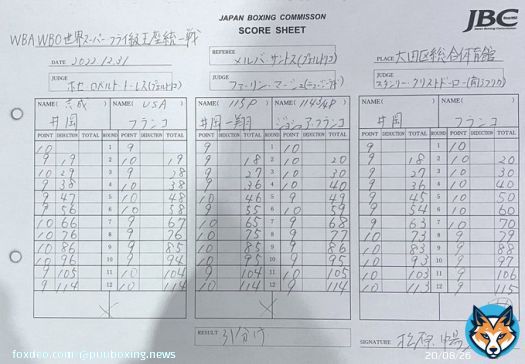 JAPAN BOXING COMMISSON
SCORE SHEET
JBC
WBA WBO世界スーパーフライ級王座統一戦
DATE 2022.12.31
REFEREE メルバ・サントス(プエルトリコ)
PLACE 大田区総合体育館
JUDGE ホセ・ロベルト・トーレス(プエルトリコ)
JUDGE
JUDGE
NAME( 志成 ) NAME( USA ) NAME( 115P ) NAME( 114 3/4P ) NAME( ) NAME( )
井岡 フランコ 井岡一翔 ジョシュア・フランコ 井岡 フランコ
POINT DEDUCTION TOTAL ROUND POINT DEDUCTION TOTAL POINT DEDUCTION TOTAL ROUND POINT DEDUCTION TOTAL POINT DEDUCTION TOTAL ROUND POINT DEDUCTION TOTAL
10 1 9 9 1 10 9 1 10
9 19 2 10 19 9 18 2 10 20 9 18 2 10 20
10 29 3 9 28 9 27 3 10 30 9 27 3 10 30
9 38 4 10 38 9 36 4 10 40 9 36 4 10 40
9 47 5 10 48 10 46 5 9 49 9 45 5 10 50
9 56 6 10 58 9 55 6 10 59 9 54 6 10 60
10 66 7 9 67 10 65 7 9 68 9 63 7 10 70
10 76 8 9 76 10 75 8 9 77 10 73 8 9 79
10 86 9 9 85 10 85 9 9 86 10 83 9 9 88
10 96 10 9 94 10 95 10 9 95 10 93 10 9 97
9 105 11 10 104 9 104 11 10 105 10 103 11 9 106
9 114 12 10 114 10 114 12 9 114 10 113 12 9 115
RESULT 引分け
SIGNATURE
foxdeo.com@puuboxing.news
20/08/26